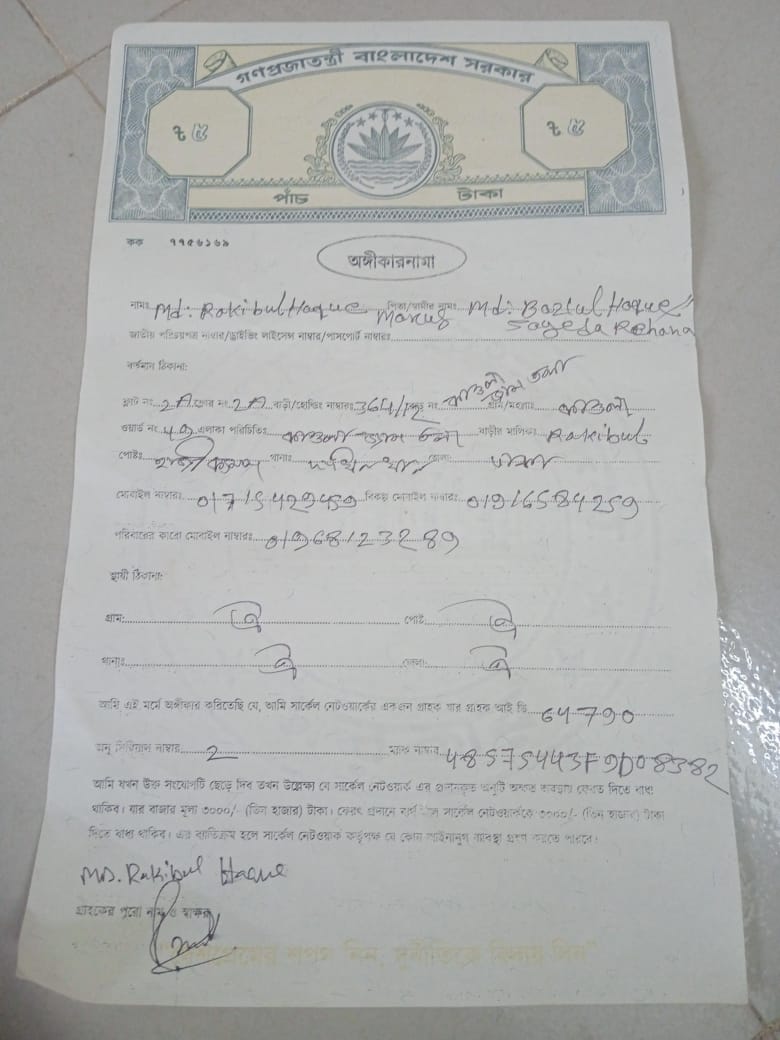 গণপ্রজাতন্ত্রী বাংলাদেশ সরকার
৳ ৫ ৳ ৫
পাঁচ টাকা
কক ৭৭৫৬১৬৯
অঙ্গীকারনামা
নামঃ Md: Rakibul Haque পিতা/স্বামীর নামঃ Md: Bazlul Haque
জাতীয় পরিচয়পত্র নাম্বার/ড্রাইভিং লাইসেন্স নাম্বার/পাসপোর্ট নাম্বারঃ Sayeda Rehana
বর্তমান ঠিকানা:
ফ্লাট নং 2A ফ্লোর নং 2A বাড়ী/হোল্ডিং নাম্বারঃ 364/ নং গ্রাম/মহল্লাঃ কাওলা
ওয়ার্ড নং 49 এলাকা পরিচিতিঃ কাওলা বাড়ীর মালিকঃ Rakibul
পোষ্টঃ থানাঃ দক্ষিনখান জেলাঃ ঢাকা
মোবাইল নাম্বারঃ 01715429459 বিকল্প মোবাইল নাম্বারঃ 01916584259
পরিবারের কারো মোবাইল নাম্বারঃ 01968123289
স্থায়ী ঠিকানা:
গ্রাম: ঐ পোষ্ট ঐ
থানাঃ ঐ জেলা: ঐ
আমি এই মর্মে অঙ্গীকার করিতেছি যে, আমি সার্কেল নেটওয়ার্কের একজন গ্রাহক যার গ্রাহক আই ডি 64790
অনু সিরিয়াল নাম্বার 2 ম্যাক নাম্বার 48575443F9D08382
আমি যখন উক্ত সংযোগটি ছেড়ে দিব তখন উল্লেক্ষ্য যে সার্কেল নেটওয়ার্ক এর প্রদানকৃত অনুটি অক্ষত অবস্থায় ফেরত দিতে বাধ্য
থাকিব। যার বাজার মূল্য ৩০০০/- (তিন হাজার) টাকা। ফেরৎ প্রদানে সার্কেল নেটওয়ার্ককে ৩০০০/- (তিন হাজার) টাকা
দিতে বাধ্য থাকিব। এর ব্যতিক্রম হলে সার্কেল নেটওয়ার্ক কর্তৃপক্ষ যে কোন আইনানুগ ব্যবস্থা গ্রহণ করতে পারবে।
MD. Rakibul Haque
গ্রাহকের পুরো নাম ও স্বাক্ষর
শপথ নিন, দুর্নীতিকে বিদায় দিন"